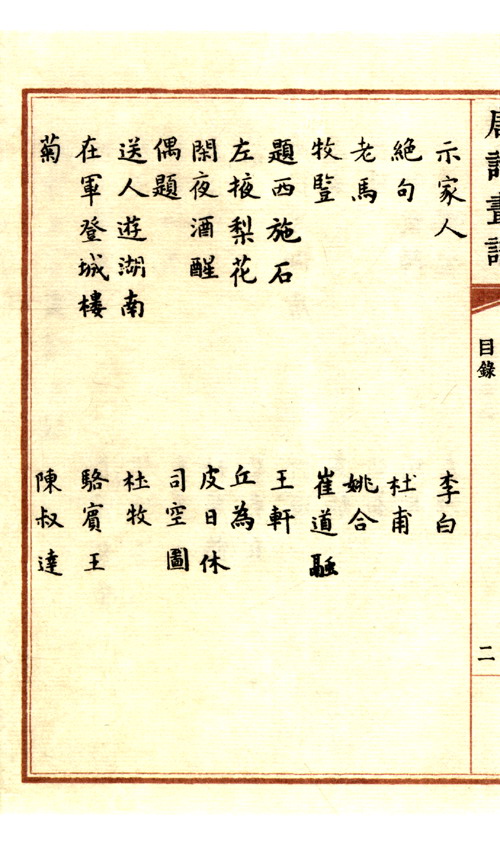 唐詩畫譜
目錄
二
示家人 李白
絕句 杜甫
老馬 姚合
牧豎 崔道融
題西施石 王軒
左掖梨花 丘為
閑夜酒醒 皮日休
偶題 司空圖
送人遊湖南 杜牧
在軍登城樓 駱賓王
菊 陳叔達